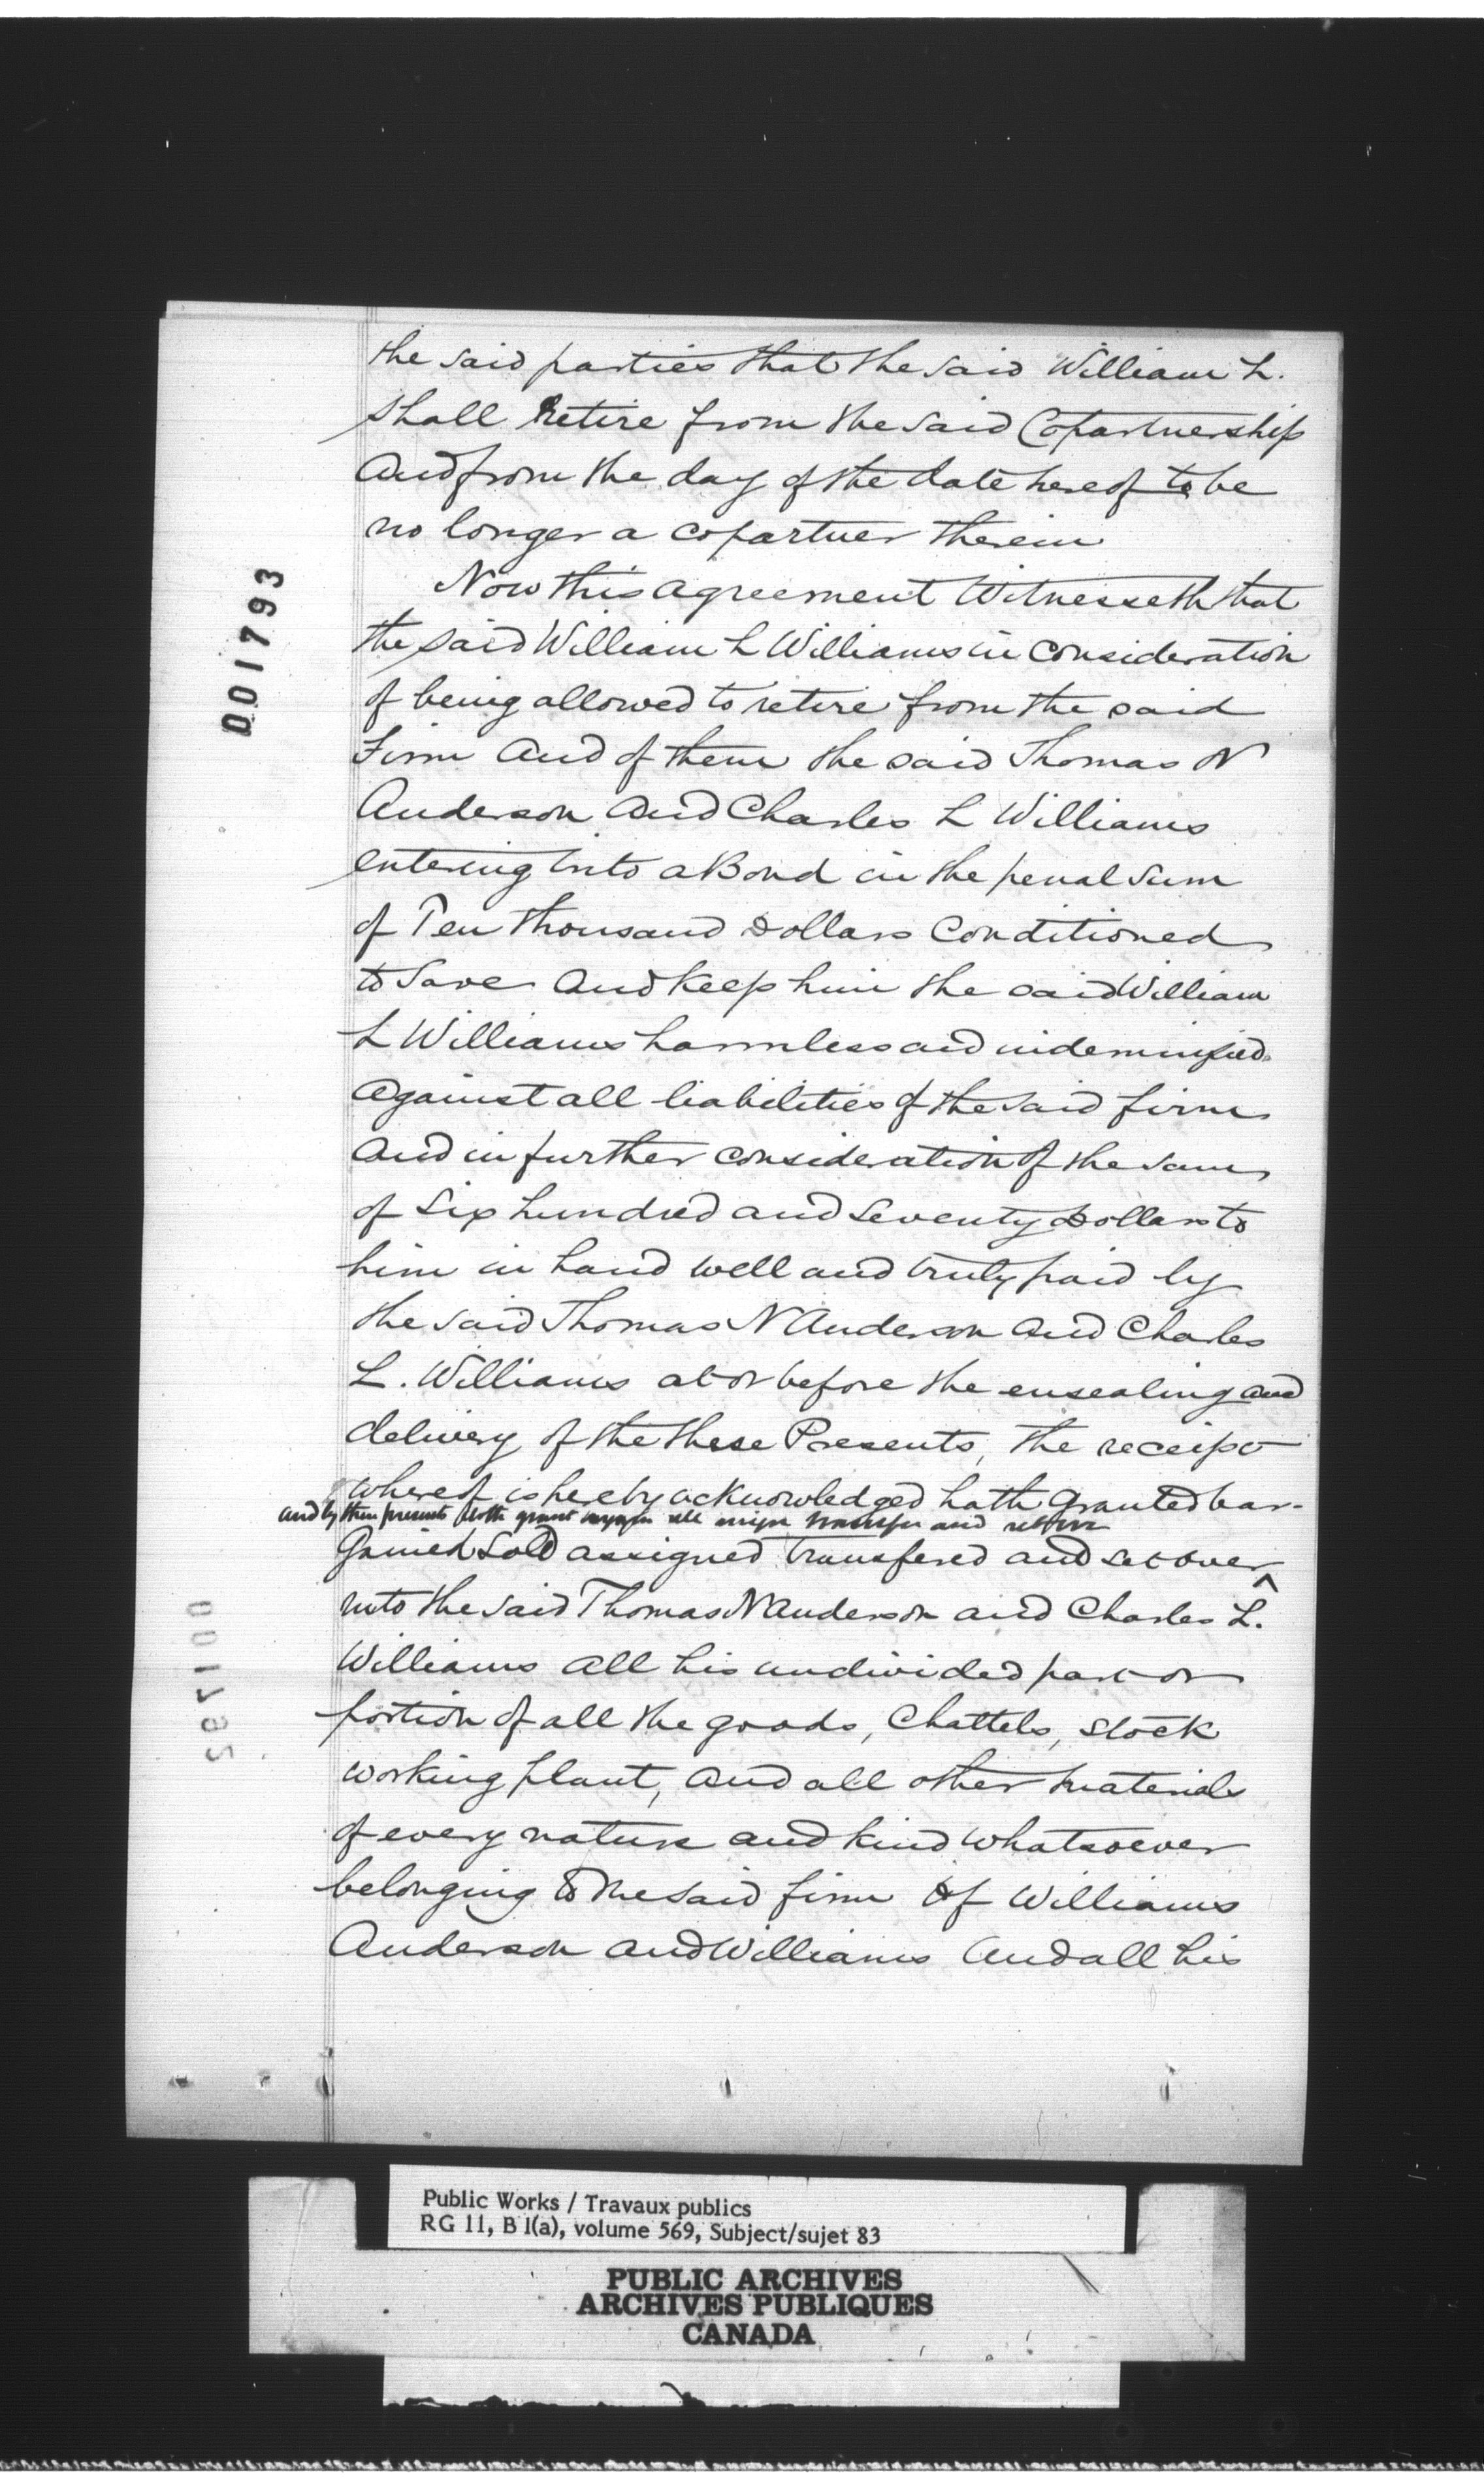 the said parties that the said William L.
shall Retire from the said Copartnership
And from the day of the date hereof to be
no longer a copartner therein
Now this agreement Witnesseth that
the said William L Williams in consideration
of being allowed to retire from the said
Firm And of them the said Thomas N
Anderson and Charles L Williams
entering into a Bond in the penal sum
of Ten thousand Dollars Conditioned
to Save And keep him the said William
L Williams harmless and indemnified
against all liabilities of the said firm
And in further consideration of the sum
of Six hundred and Seventy Dollars to
him in hand well and truly paid by
the said Thomas N Anderson and Charles
L. Williams at or before the ensealing and
delivery of the these Presents, the receipt
whereof is hereby acknowledged hath Granted bar-
and by these presents doth grant all assign transfer and
gained Sold assigned transfered and set over ^
unto the said Thomas N Anderson and Charles L.
Williams all his undivided part or
portion of all the goods, Chattels, stock
working plant, and all other materials
of every nature and kind whatsoever
belonging to the said firm of Williams
Anderson and Williams And all his
001793
001792
Public Works / Travaux publics
RG 11, B 1(a), volume 569, Subject/sujet 83
PUBLIC ARCHIVES
ARCHIVES PUBLIQUES
CANADA